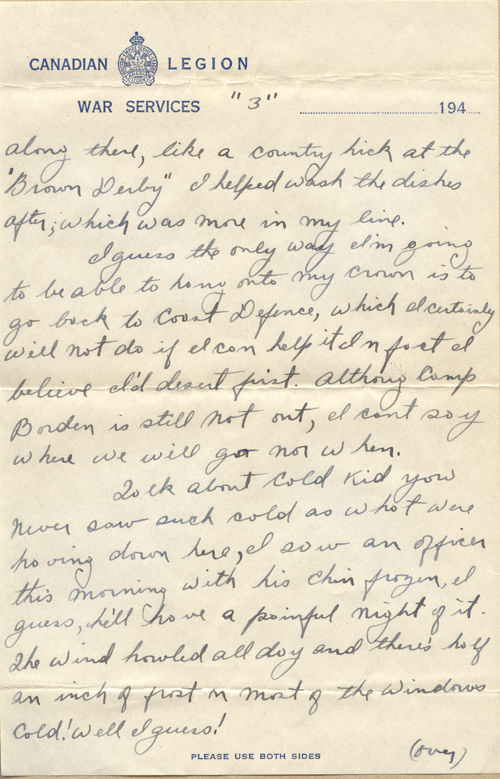 CANADIAN LEGION
WAR SERVICES "3" 194
along there, like a country hick at the
"Brown Derby" I helped wash the dishes
after, which was more in my line.
I guess the only way I'm going
to be able to hang onto my crown is to
go back to Coast Defence, which I certainly
will not do if I can help it In fact I
believe I'd desert first. Althoug Camp
Borden is still not out, I cant say
where we will go nor when.
Talk about cold Kid you
never saw such cold as what were
having down here, I saw an officer
this morning with his chin frozen, I
guess, he'll have a painful night of it.
The wind howled all day and there's half
an inch of frost on most of the windows
Cold! Well I guess!
PLEASE USE BOTH SIDES
(over)